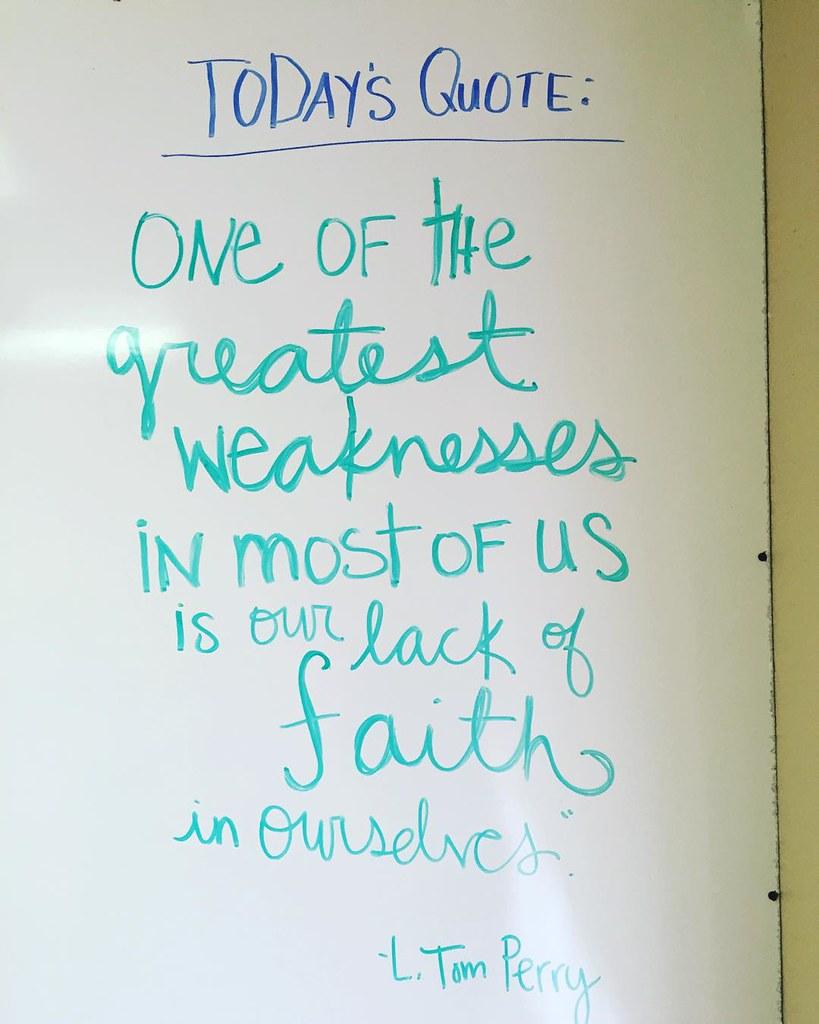 TODAY'S QUOTE:
ONE OF THE
greatest
weaknesses
IN most OF US
is our lack of
faith
in ourselves."
-L. Tom Perry